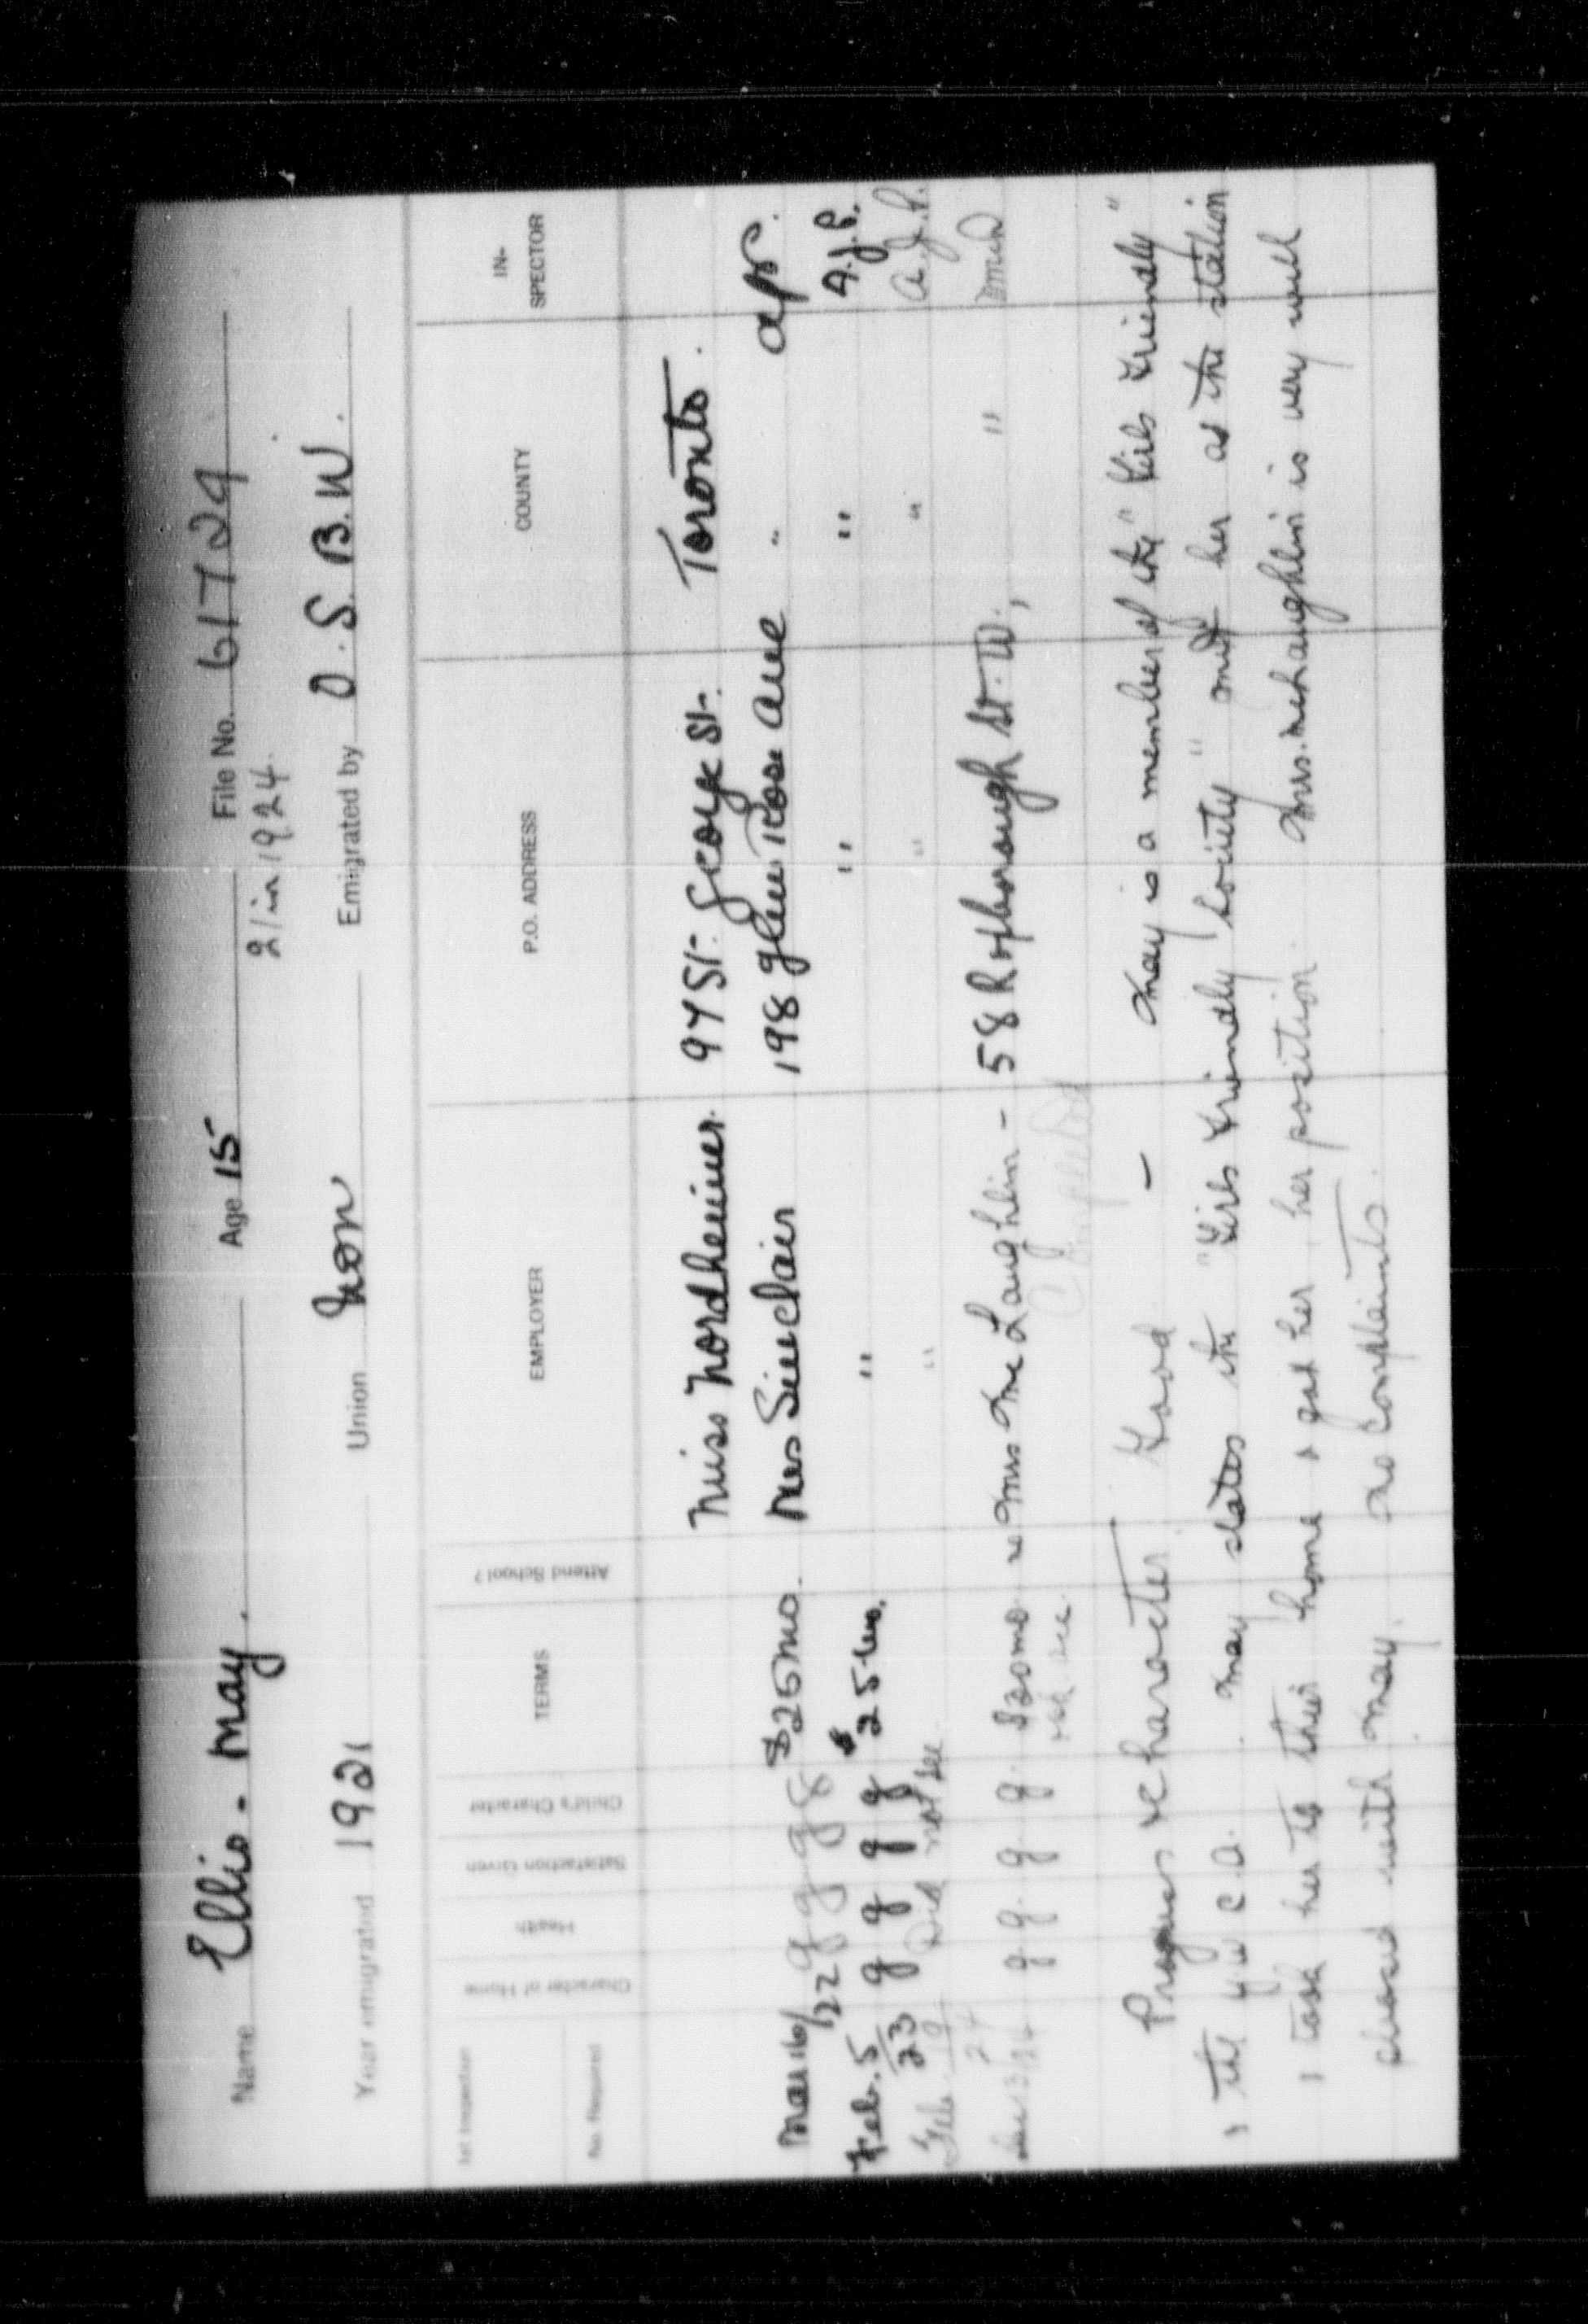 Name Ellis - May. Age 15 File No. 61724
21 in 1924.
Year emigrated 1921 Union Non Emigrated by O.S.B.W.
1st Inspection
No. Required
Character of Home
Health
Satisfaction Given
Child's Character
TERMS
Attend School?
EMPLOYER
P.O. ADDRESS
COUNTY
IN-
SPECTOR
Miss Nordheimer. 97 St. George St. Toronto.
Mar 16/22 g g g g $25 mo. Mrs Sinclair 198 Glen Rose Ave "
Feb. 5/23 g g g g $25 mo. " " " A.J.P.
Feb. 9/24 Did not see " " " A.J.P.
3/24 g g. g g. $30 mo Mrs McLaughlin - 58 Roxborough St. W., "
not see Completed
Progress & character Good - May is a member of the "Girls Friendly"
the Y W C A. May states the "Girls Friendly Society" met her at the station
& took her to their home & got her, her position. Mrs. McLaughlin is very well
pleased with May. No complaints.